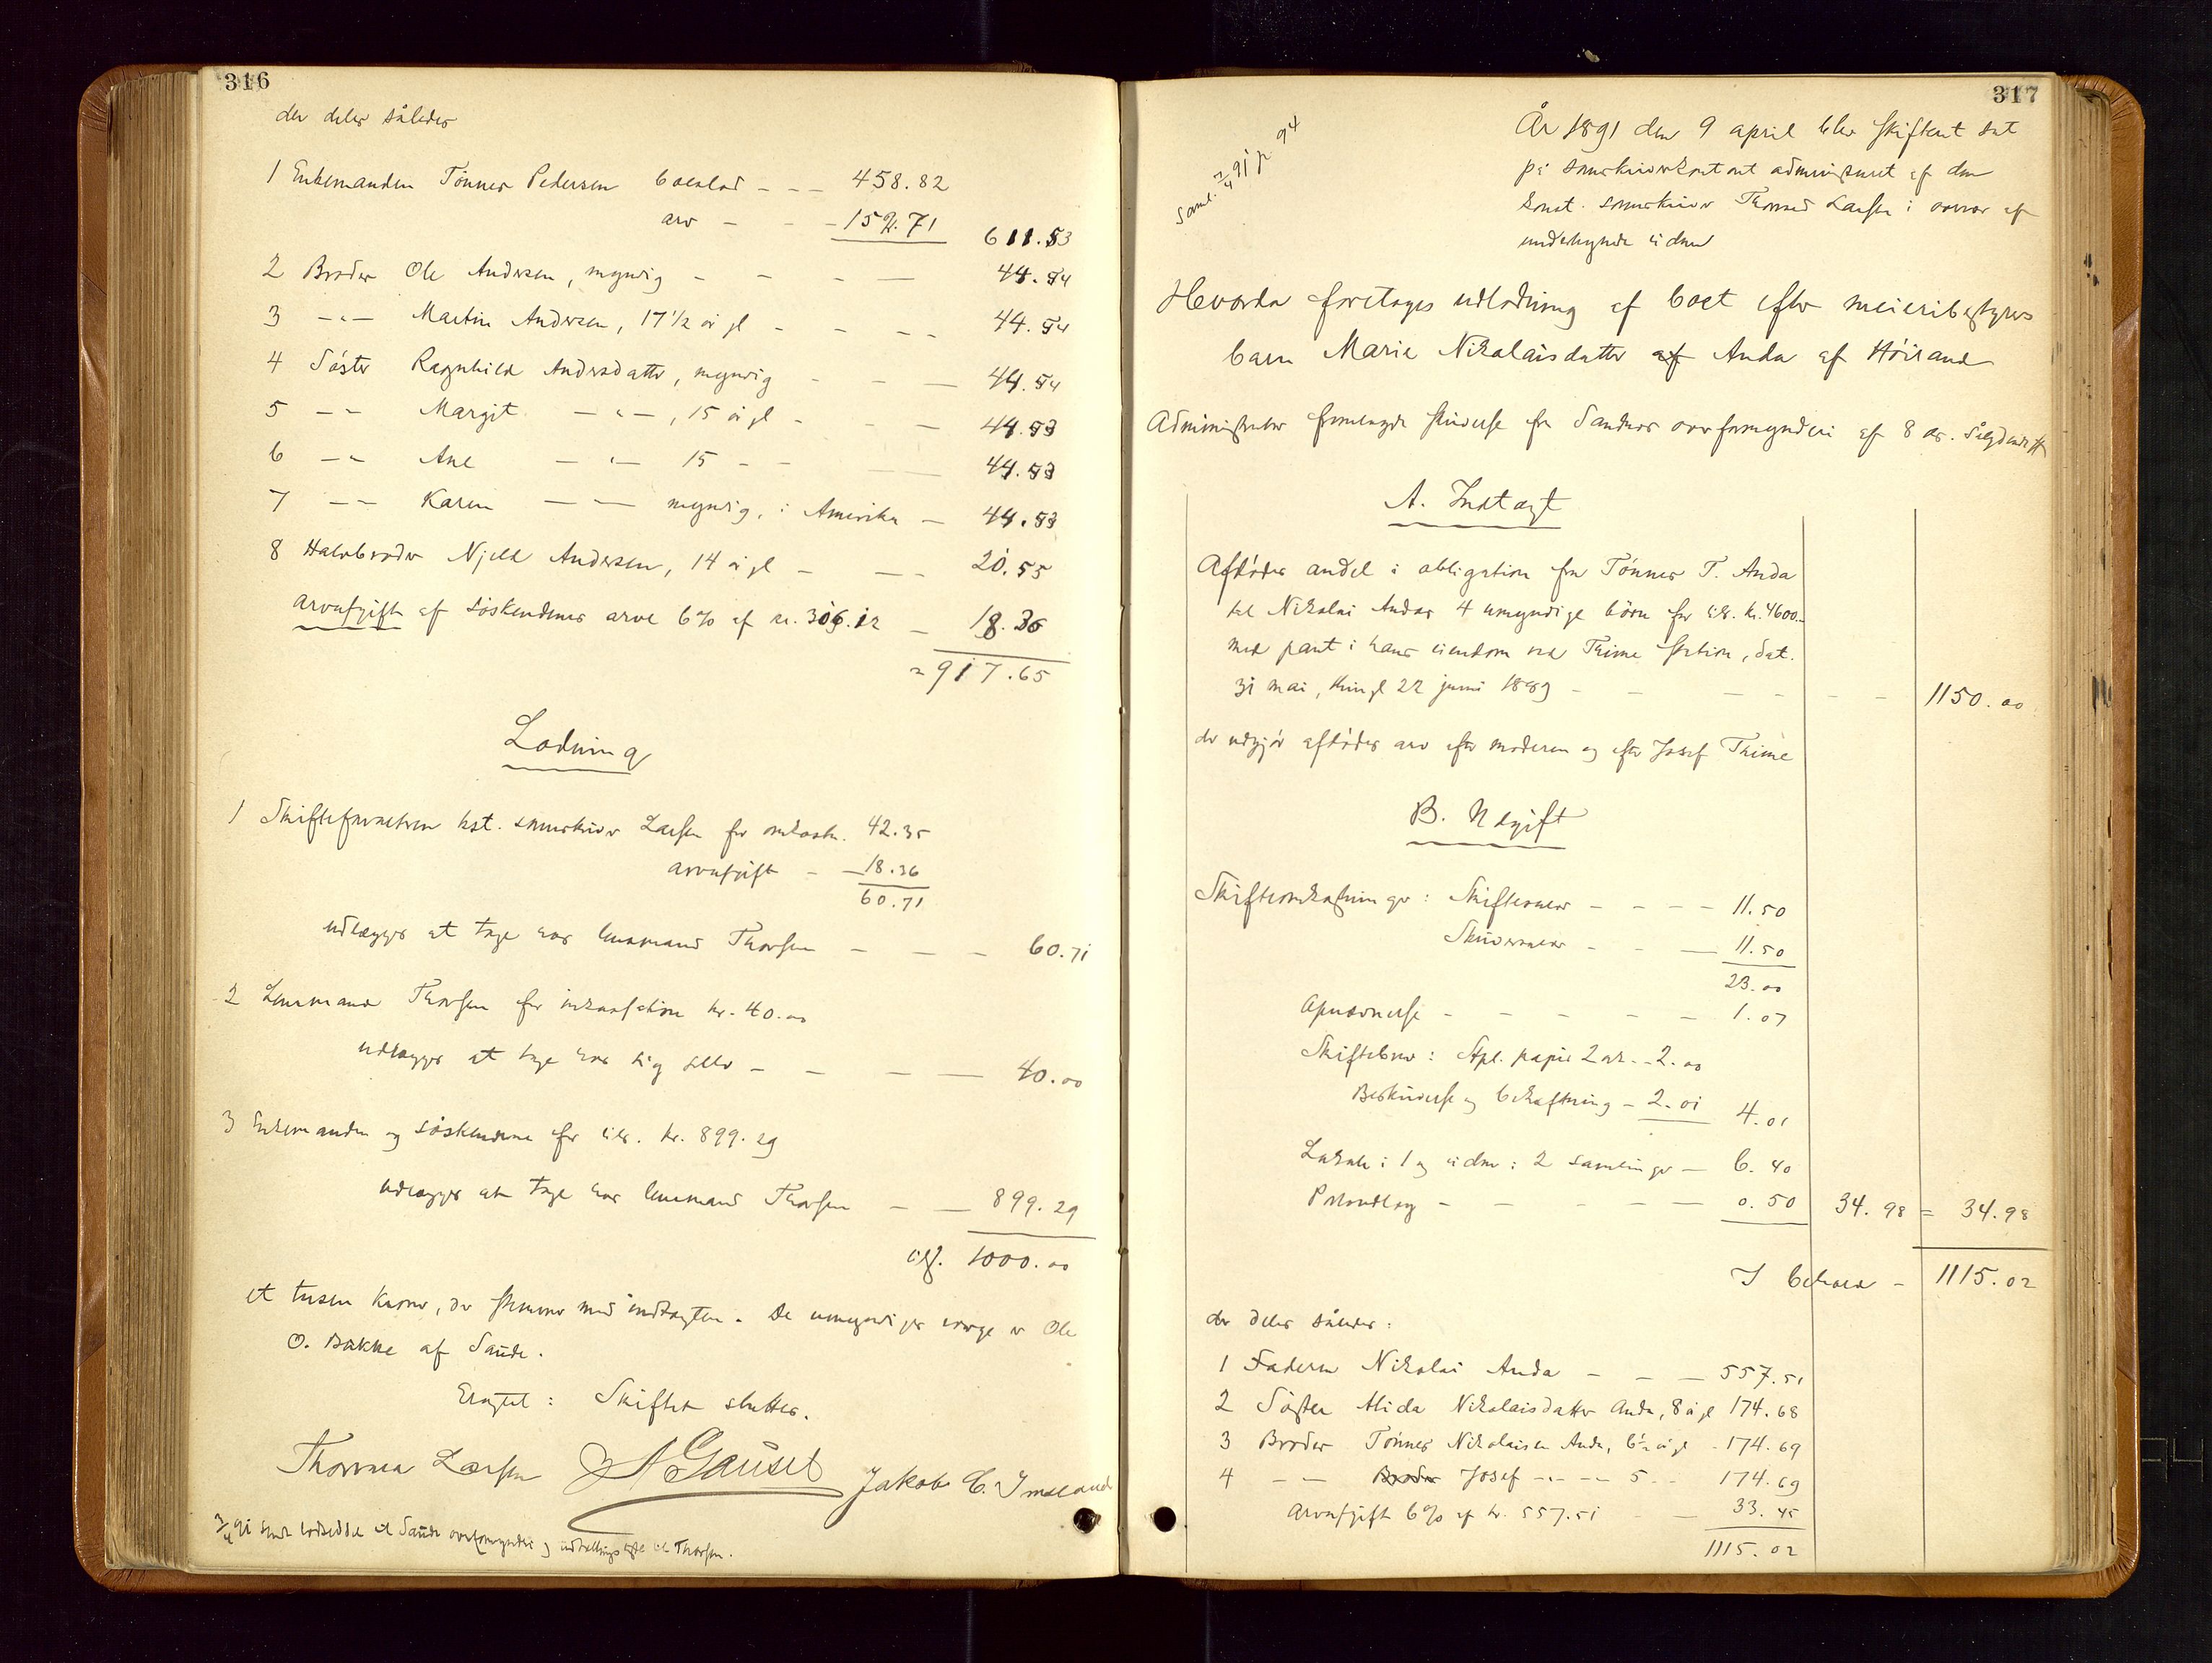 316
der deles således
1 Enkemanden Tønnes Pedersen boeslod - - - 458.82
arv - - - 152.71 611.53
2 Broder Ole Andersen, myndig - - - — 44.54
3 -"- Martin Andersen, 17 1/2 år gl - - - - 44.54
4 Søster Ragnhild Andersdatter, myndig - - — 44.54
5 -"- Margit -"-, 15 år gl - - — 44.53
6 -"- Ane -"- 15 - - — 44.53
7 -"- Karen -"- myndig, i Amerika — 44.53
8 Halvbroder Njeld Andersen, 14 år gl - - - 20.55
Arveafgift af søskendenes arve 6% af kr. 306.12 - 18.36
= 917.65
Lodning
1 Skifteforvalteren kst. sorenskriver Larsen for omkostn. 42.35
arveafgift - 18.36
60.71
udlægges at tage hos lensmand Thorsen - - - 60.71
2 Lensmand Thorsen for inkassation kr. 40.00
udlægges at tage hos sig selv - - - — 40.00
3 Enkemanden og søskendene for tils. kr. 899.29
udlægges at tage hos lensmand Thorsen - — 899.29
tils. 1000.00
et tusen kroner, der stemmer med indtægten. De umyndiges verge er Ole
O. Bakke af Saude.
Eragtet: Skiftet sluttes.
Thomas Larsen A Gauset Jakob C. Imsland
3/4 91 sendt lodseddel til Saude overformynderi og udbetalingsliste til Thorsen.
317
Saml. 3/4 91 p 94
År 1891 den 9 april blev skifteret sat
på sorenskriverkontoret administreret af den
konst. sorenskriver Thomas Larsen i overvær af
underhynde vidner
Hvorda foretoges udlodning af boet efter meieribestyrer
barn Marie Nikolaisdatter af Anda af Høiland
Administrator fremlagde skrivelse fra Sandnes overformynderi af 8 ds.
A. Indtægt
Afdødes andel i obligation fra Tønnes T. Anda
til Nikolai Andas 4 umyndige børn for tils. kr. 4600.-
med pant i hans eiendom ved Thime station, dat.
31 mai, thingl 22 juni 1889 - - - - - - 1150.00
der udgjør afdødes arv efter moderen og efter Josef Thime
B. Udgift
Skifteomkostninger: Skiftesalær - - - - 11.50
Skriversalær - - — 11.50
23.00
Apnævnelse - - - - - 1.07
Skiftebrev: Stpl. papir 2 ark - 2.00
Beskrivelse og bekræftning - 2.01 4.01
Lokale i 1 og vidner i 2 samlinger - 6.40
Protokollæg - - - - — 0.50 34.98 = 34.98
I behold - 1115.02
der deles således:
1 Faderen Nikolai Anda - - — 557.51
2 Søster Alida Nikolaisdatter Anda, 8 år gl 174.68
3 Broder Tønnes Nikolaisen Anda, 6 1/2 år gl - 174.69
4 -"- Broder Josef -"- -"- 5 - - 174.69
Arveafgift 6% af kr. 557.51 - — 33.45
1115.02